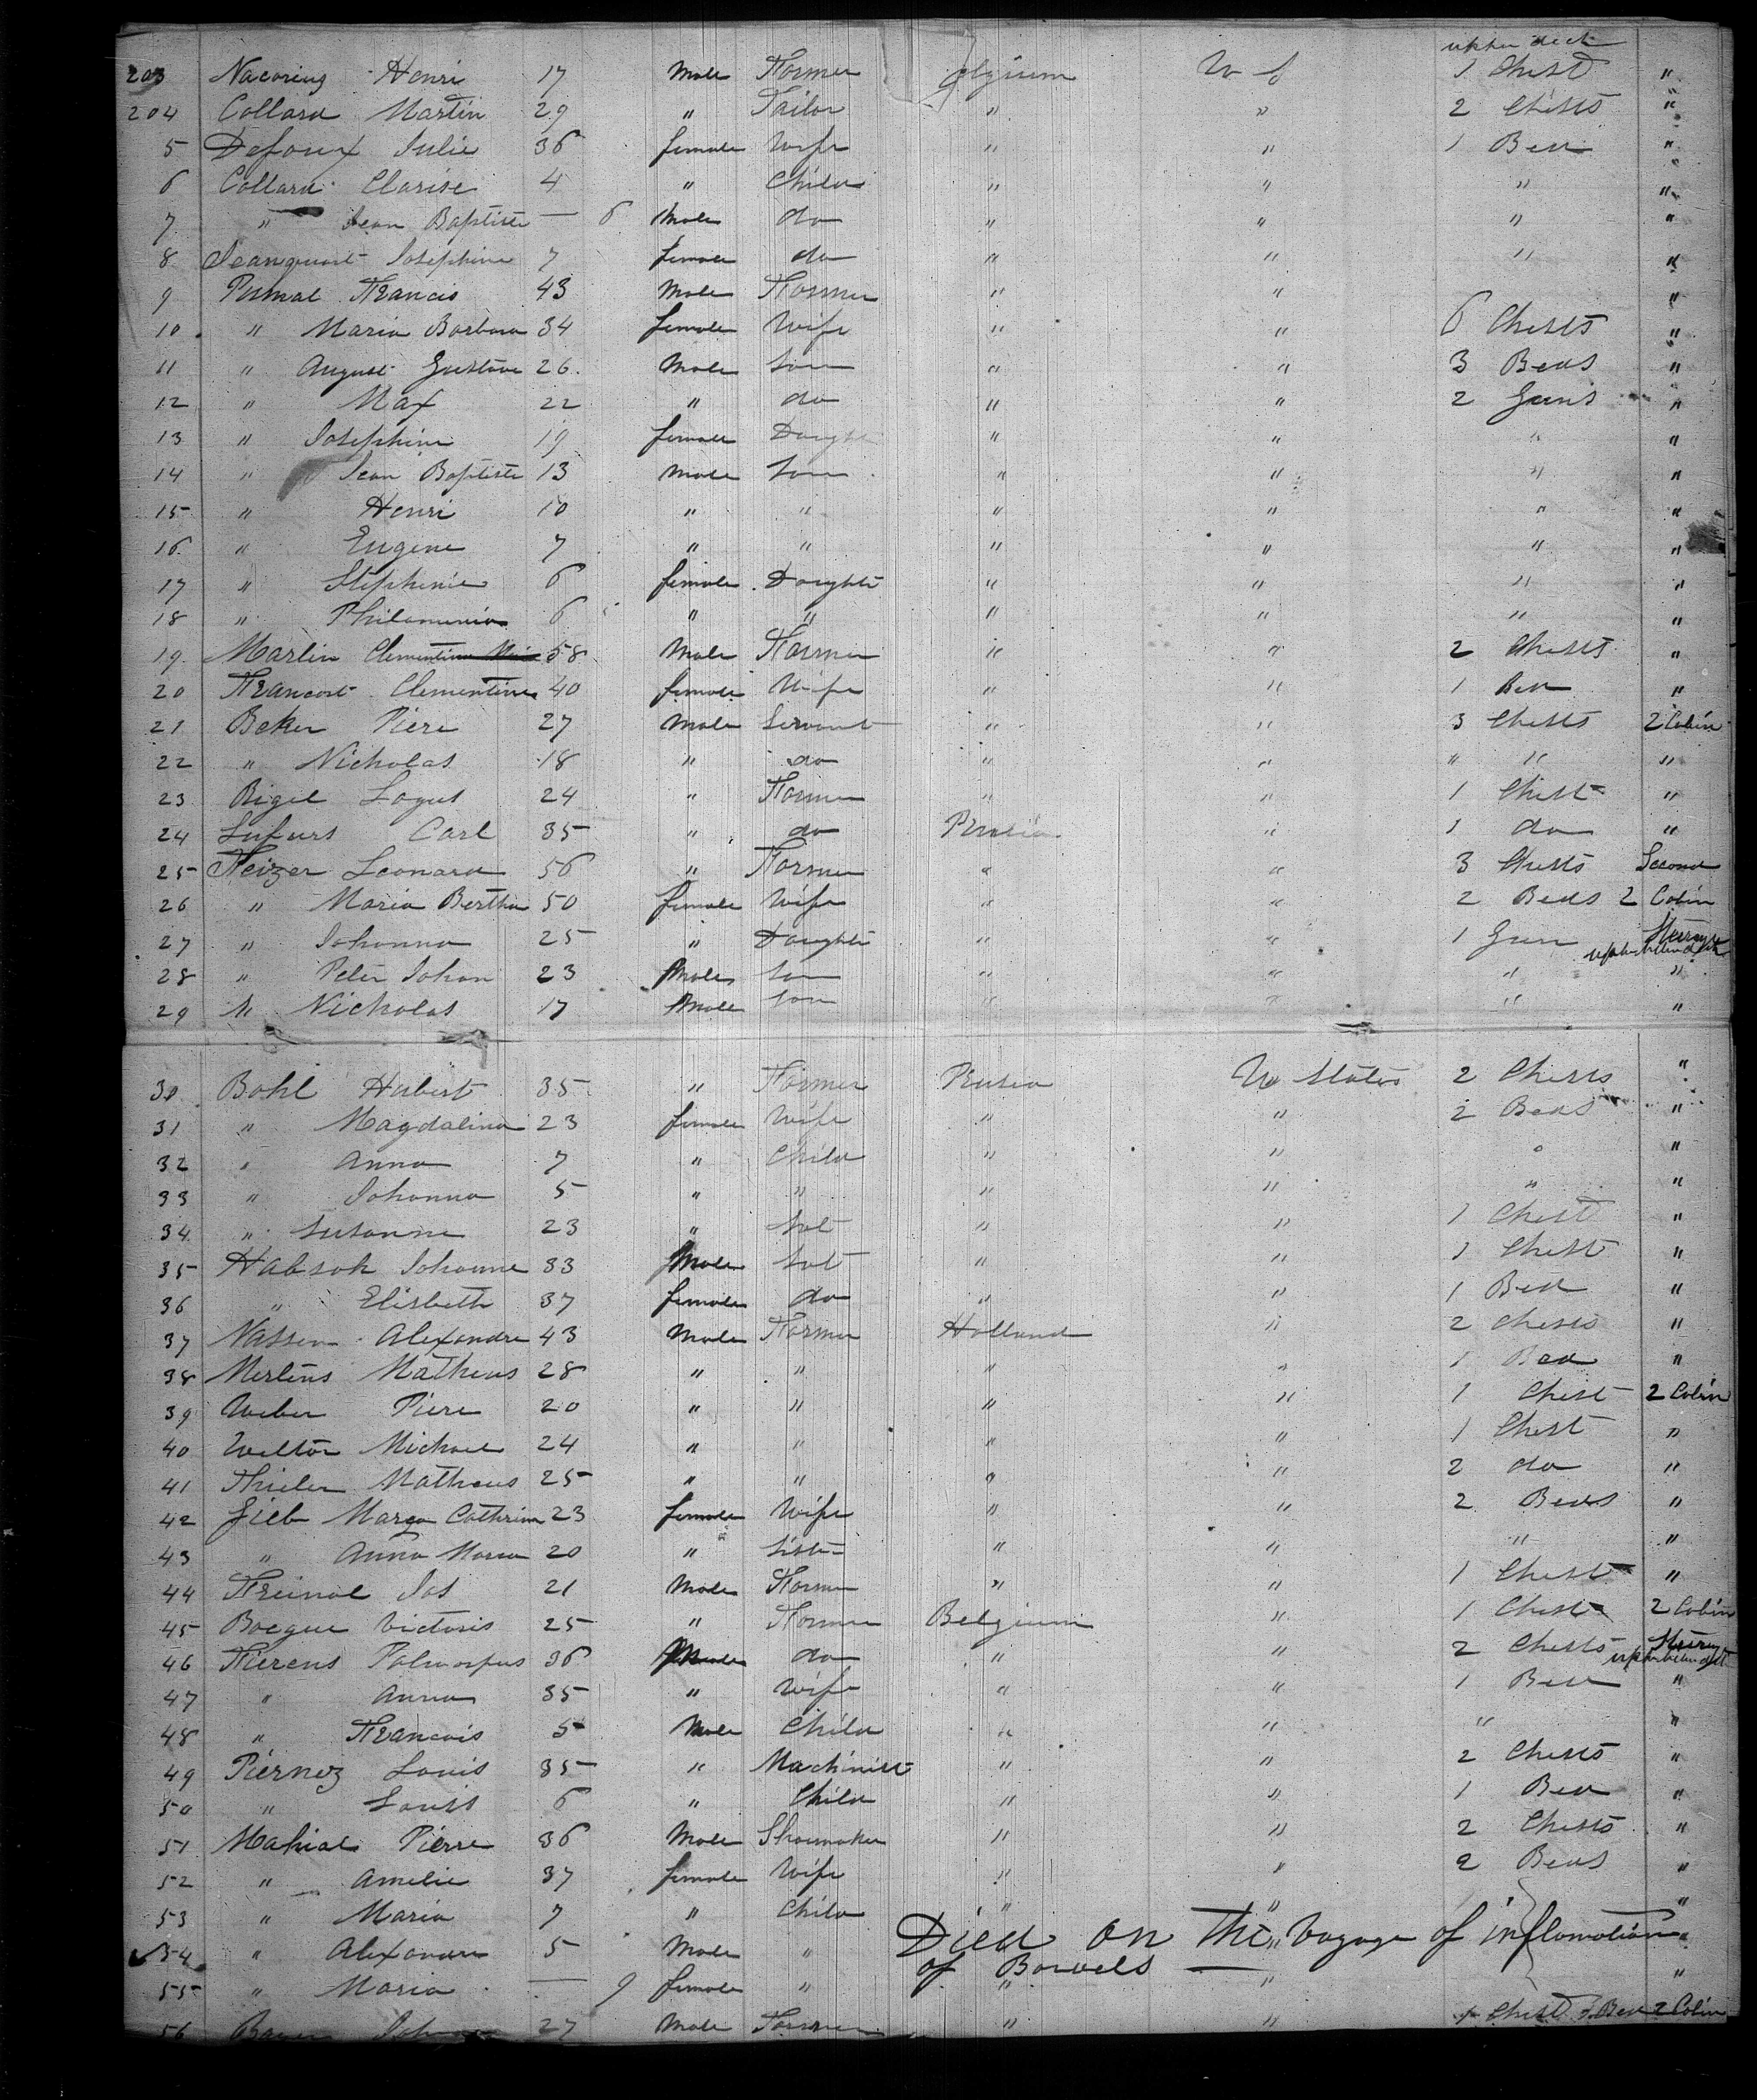 upper deck
203 Nacoring Henri 17 Male Farmer elgium U S 1 Chest "
204 Collard Martin 29 " Tailor " " 2 Chests "
5 Defoux Julie 36 female Wife " " 1 Bed "
6 Collard Clarise 4 " Child " " " "
7 " Jean Baptiste — 6 Male do " " " "
8 Jeanquart Josephine 7 female do " " " "
9 Pumal Francis 43 Male Farmer " " "
10 " Maria Barbara 34 female Wife " " 6 Chests "
11 " August Gustave 26 Male Son " " 3 Beds "
12 " Max 22 " do " " 2 Guns "
13 " Josephine 19 female Daught " " " "
14 " Jean Baptiste 13 Male Son " " " "
15 " Henri 10 " " " " " "
16 " Eugene 7 " " " " " "
17 " Stephenie 6 female Daughte " " " "
18 " Philomenia 6 " " " " " "
19 Marlin Clementine 58 Male Farmer " " 2 Chests "
20 Francort Clementine 40 female Wife " " 1 Bed "
21 Beker Piere 27 Male Servant " " 3 Chests 2 Cabin
22 " Nicholas 18 " do " " " " "
23 Rigel Logus 24 " Farmer " " 1 Chest "
24 Lufurs Carl 35 " do Prusia " 1 do "
25 Feizer Leonard 56 " Farmer " " 3 Chests Second
26 " Maria Bertha 50 female Wife " " 2 Beds 2 Cabin
27 " Johanna 25 " Daughte " " 1 Gun
28 " Peter Johan 23 Male Son " " " "
29 " Nicholas 17 Male Son " " " "
30 Bohl Hubert 35 " Farmer Prusia U States 2 Chests "
31 " Magdalina 23 female Wife " " 2 Beds "
32 " Anna 7 " Child " " " "
33 " Johanna 5 " " " " " "
34 " Susanne 23 " " " 1 Chest "
35 Habsoh Johanne 33 Male " " 1 Chest "
36 " Elisbeth 37 female do " " 1 Bed "
37 Nassen Alexandre 43 Male Farmer Holland " 2 Chests "
38 Mertins Matheus 28 " " " " 1 Bed "
39 Weber Piere 20 " " " " 1 Chest 2 Cabin
40 Weltor Michael 24 " " " " 1 Chest "
41 Thielen Matheus 25 " " " " 2 do "
42 Gieb Marga Cathrina 23 female Wife " " 2 Beds "
43 " Anna Maria 20 " Siste " " " "
44 Freinal Jos 21 Male Farmer " " 1 Chest "
45 Bocque Victoris 25 " Farmer Belgium " 1 Chest 2 Cabin
46 Fierens Polmorpus 36 Male do " " 2 Chests
47 " Anna 35 " Wife " " 1 Bed "
48 " Francois 5 Male Child " " " "
49 Piernez Louis 35 " Machinist " " 2 Chests "
50 " Louis 6 " Child " " 1 Bed "
51 Mahial Pierre 36 Male Shoemaker " " 2 Chests "
52 " Amelie 37 female Wife " " 2 Beds "
53 " Maria 7 " Child " " "
54 " Alexandre 5 Male " Died on the Voyage of inflamation
of Bowels
55 " Maria — 9 female " " " "
56 27 Male Farmer " " Chest Bed 2 Cabin